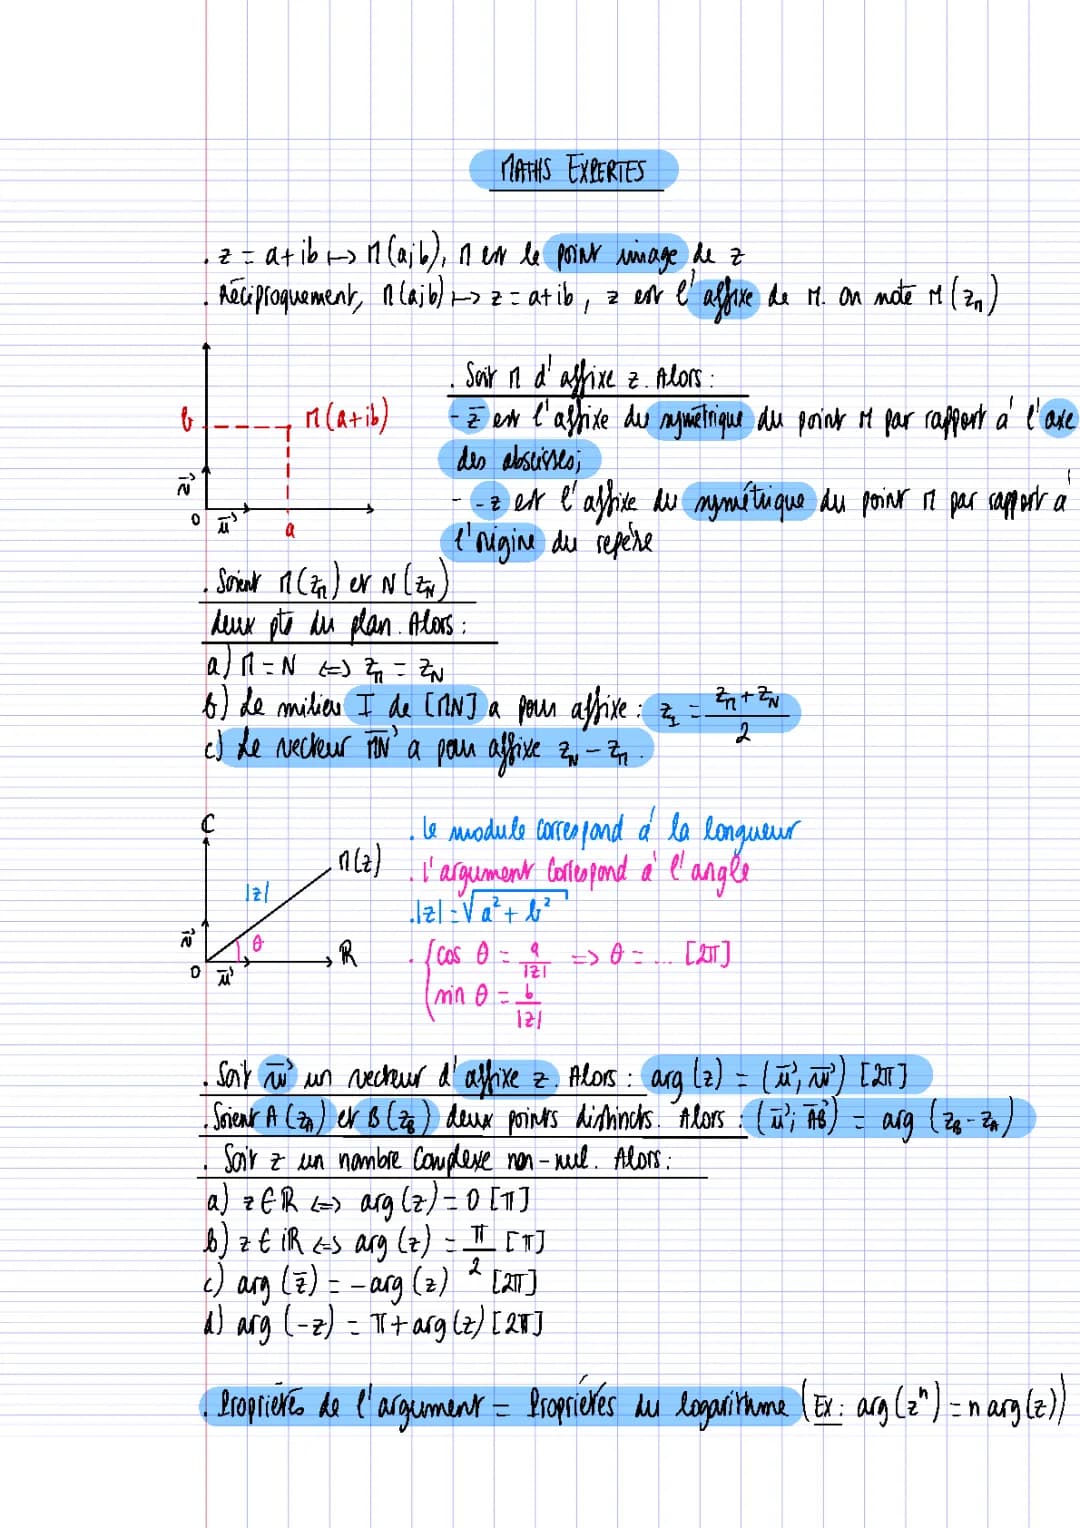 MATHS EXPERTES
. z = a+ib ↦ M(a;b), M est le point image de z
. Réciproquement, M(a;b) ↦ z = a+ib, z est l'affixe de M. On note M(z_M)
b
M(a+ib)
v⃗
O
u⃗
a
. Soit M d'affixe z. Alors :
- z̄ est l'affixe du symétrique du point M par rapport à l'axe
des abscisses;
- -z est l'affixe du symétrique du point M par rapport à
l'origine du repère
. Soient M(z_M) et N(z_N)
deux pts du plan. Alors :
a) M = N ⇔ z_M = z_N
b) Le milieu I de [MN] a pour affixe : z_I = (z_M + z_N)/2
c) Le vecteur MN⃗ a pour affixe z_N - z_M.
C
M(z)
|z|
θ
v⃗
O
u⃗
ℝ
. Le module correspond à la longueur
. L'argument correspond à l'angle
. |z| = √(a² + b²)
. { cos θ = a/|z| ⇒ θ = ... [2π]
sin θ = b/|z|
. Soit w⃗ un vecteur d'affixe z. Alors : arg(z) = (u⃗, w⃗) [2π]
. Soient A(z_A) et B(z_B) deux points distincts. Alors : (u⃗; AB⃗) = arg(z_B - z_A)
. Soit z un nombre complexe non-nul. Alors :
a) z ∈ ℝ ⇔ arg(z) = 0 [π]
b) z ∈ iℝ ⇔ arg(z) = π/2 [π]
c) arg(z̄) = -arg(z) [2π]
d) arg(-z) = π + arg(z) [2π]
. Propriétés de l'argument = Propriétés du logarithme (Ex : arg(zⁿ) = n arg(z))